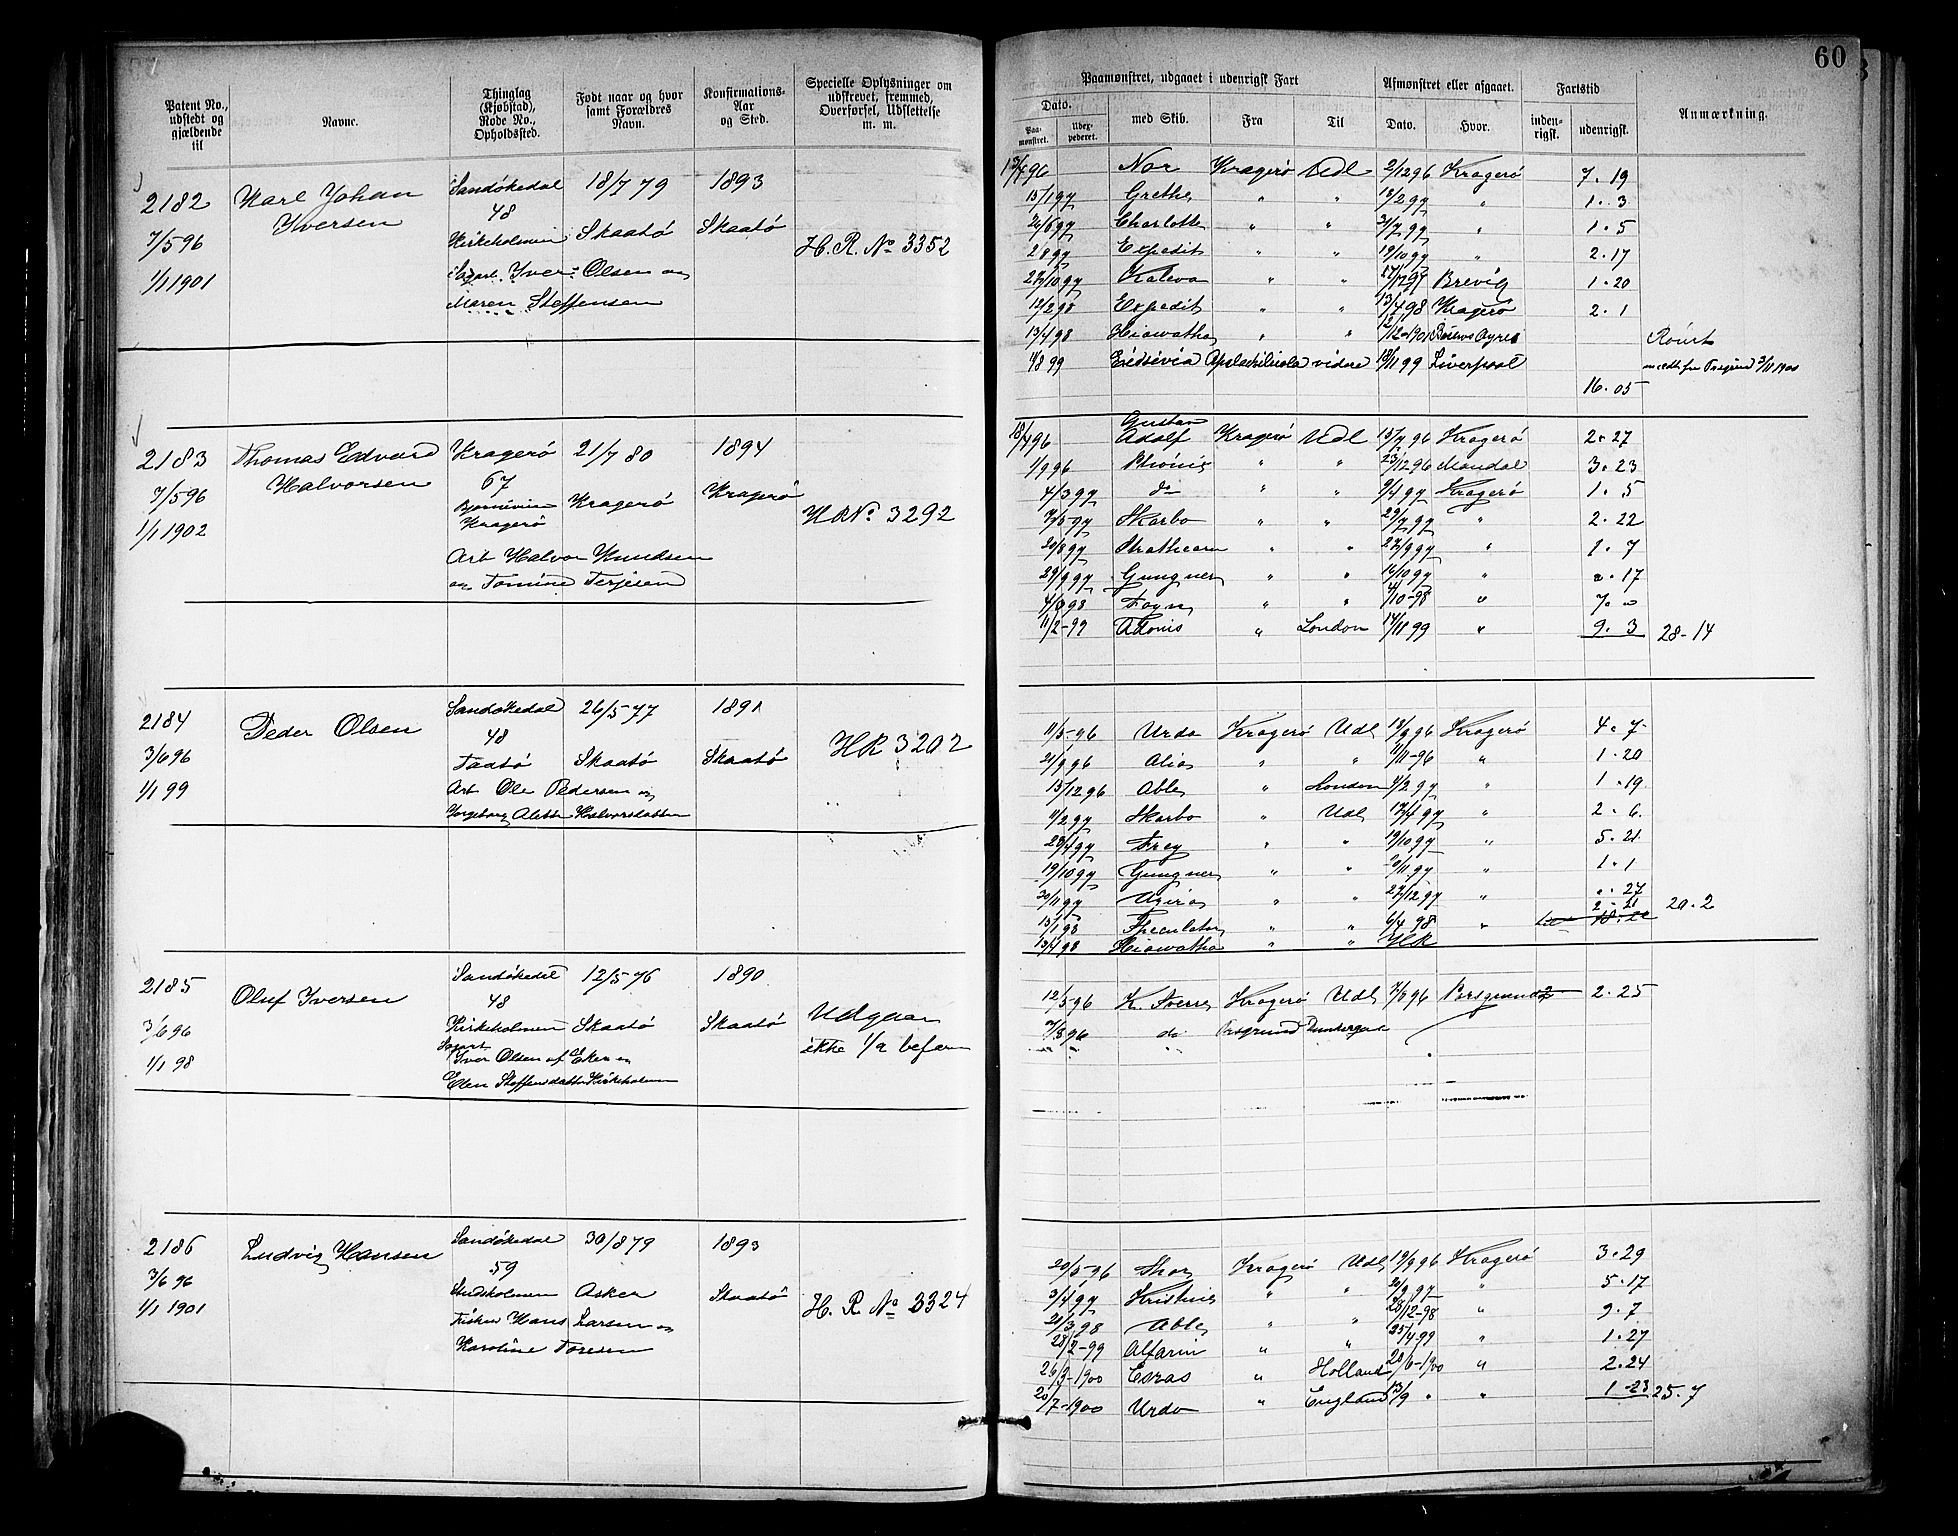 60
Patent No., udstedt og gjældende til
Navne.
Thinglag (Kjøbstad), Rode No., Opholdssted.
Født naar og hvor samt Forældres Navn.
Konfirmations-Aar og Sted.
Specielle Oplysninger om udskrevet, fremmed, Overførsel, Udslettelse m. m.
Paamønstret, udgaaet i udenrigsk Fart
Afmønstret eller afgaaet.
Fartstid
Anmærkning.
Dato.
Paamønstret.
Udexpederet.
med Skib.
Fra
Til
Dato.
Hvor.
indenrigsk.
udenrigsk.
2182 Karl Johan Sandøkedal 18/7 79 1893
Iversen 48
7/5 96 Kirkeholmen Skaatø Skaatø H. R. No 3352
1/1 1901 Iver Olsen og
Maren Steffensen
13/4 96 Nor Kragerø Udl 2/12 96 Kragerø 7. 19
15/1 97 Grethe " " 18/2 97 " 1. 3
26/6 97 Charlotte " " 31/7 97 " 1. 5
2/8 97 Expedit " " 19/10 97 " 2. 17
27/10 97 Kaleva " " 17/12 97 Brevig 1. 20
12/2 98 Expedit " " 13/4 98 Kragerø 2. 1
13/4 98 Hiawatha " " Buenos Ayres Rømt
4/8 99 Apalachicola videre 18/11 99 Liverpool
16. 05
2183 Thomas Edvard Kragerø 21/7 80 1894
Halvorsen 67
7/5 96 Kragerø Kragerø Kragerø HR No. 3292
1/1 1902 Arb Halvor Knudsen
og Tomine Terjesen
18/4 96 Gustav Adolf Kragerø Udl 15/7 96 Kragerø 2. 27
1/9 96 Phønix " " 23/12 96 Mandal 3. 23
4/3 97 do " " 9/4 97 Kragerø 1. 5
7/5 97 Skarbo " " 29/7 97 " 2. 22
20/8 97 Strathearn " " 27/9 97 " 1. 7
29/9 97 Gungner " " 16/10 97 " 0. 17
98 Foyn " " 4/10-98 " 7. "
11/2-99 Adonis " London 14/11 99 " 9. 3 28-14
2184 Peder Olsen Sandøkedal 26/5 77 1891
48
3/6 96 Taatø Skaatø Skaatø HR 3202
1/1 99 Arb Ole Pedersen og
Ingeborg Alette Halvorsdatter
11/5-96 Urda Kragerø Udl 18/9 96 Kragerø 4. 7
21/9 96 Alia " " 11/11-96 " 1. 20
15/12 96 Able " London 4/2 97 " 1. 19
11/2 97 Skarbo " Udl 17/4 97 " 2. 6.
28/4 97 Frey " " 19/10 97 " 5. 21
19/10 97 Gungner " " 20/11 97 " 1. 1
30/11 97 " " 27/12 97 " ". 27
15/1 98 Speculator " " 6/4 98 " 2. 21 20. 2
13/4 98 Hiawatha " " HR
2185 Oluf Iversen Sandøkedal 12/5 76 1890
48
3/6 96 Kirkeholmen Skaatø Skaatø Udgaar
1/1 98 Iver Olsen af Eken og ikke 1/2 befaren
Elen Steffensdatter Kirkeholmen
12/5 96 K. Sverre Kragerø Udl 7/8 96 Porsgrund 2. 25
7/8 96 do Porsgrund Dunkerque
2186 Ludvig Hansen Sandøkedal 30/8 79 1893
59
3/6 96 Asker Skaatø H. R. No 3324
1/1 1901 Fisker Hans Larsen og
Karoline Toresen
20/5-96 Thor Kragerø Udl 19/9 96 Kragerø 3. 29
3/4 97 Kristine " " 20/9 97 " 5. 17
21/3 98 Able " " 28/12-98 " 9. 7
28/2-99 Alfarin " " 25/4 99 " 1. 27
26/3-1900 Esras " Holland 20/6-1900 " 2. 24
20/7-1900 Urda " England 13/9 " " 1. 23 25. 7